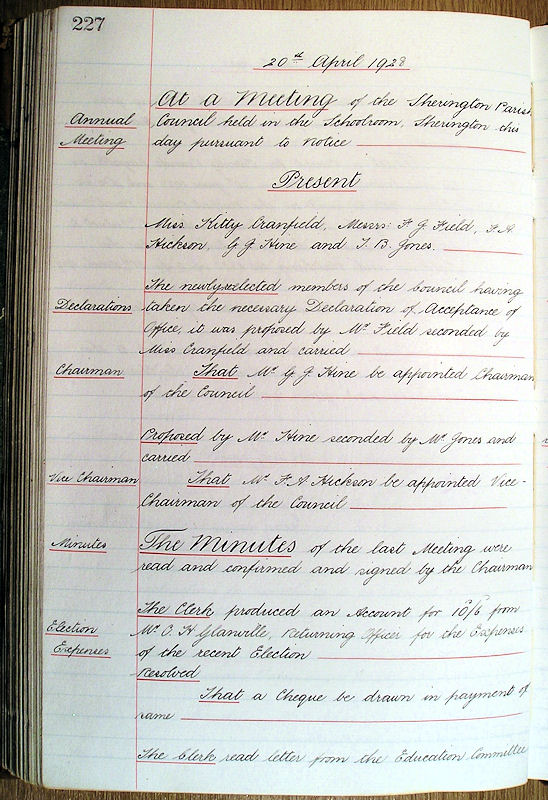 227
20th April 1928
At a Meeting of the Sherington Parish
Annual Council held in the Schoolroom, Sherington this
Meeting day pursuant to Notice
Present
Miss Kitty Cranfield, Messrs: F. G. Field, F. A.
Hickson, G G Hine and T. B. Jones.
The newly elected members of the Council having
Declarations taken the necessary Declaration of Acceptance of
Office, it was proposed by Mr Field seconded by
Miss Cranfield and carried
Chairman That Mr G G. Hine be appointed Chairman
of the Council
Proposed by Mr Hine seconded by Mr Jones and
carried
Vice Chairman That Mr F. A Hickson be appointed Vice-
Chairman of the Council
Minutes The Minutes of the last Meeting were
read and confirmed and signed by the Chairman
The Clerk produced an Account for 10/6 from
Election Mr O. H Glanville, Returning Officer for the Expenses
Expenses of the recent Election
Resolved
That a Cheque be drawn in payment of
same
The Clerk read letter from the Education Committee